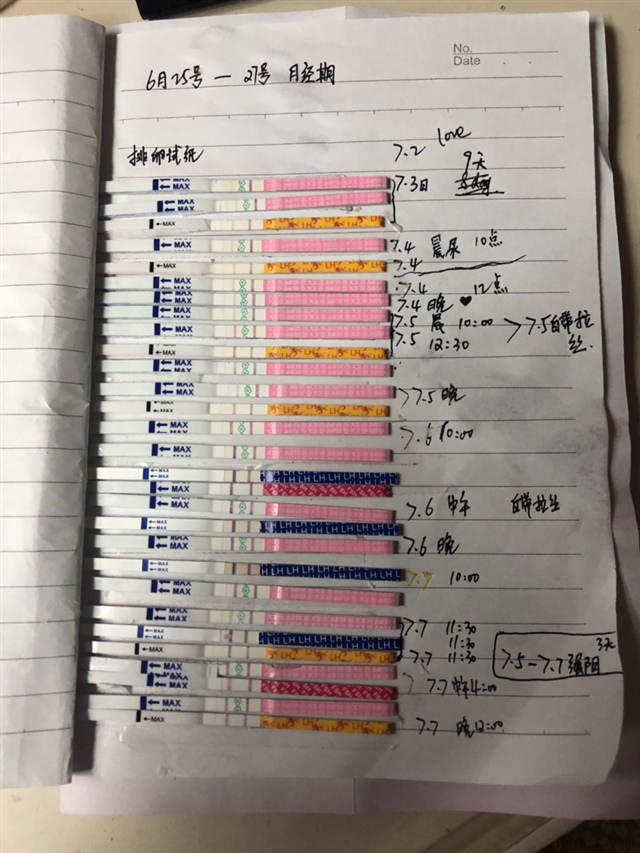 No.
Date
6月25号 — 27号 月经期
排卵试纸
7.2 love
9天
7.3日
MAX
MAX
MAX
MAX
7.4 晨尿 10点
MAX
7.4
MAX
7.4 12点
MAX
7.4 晚 ♥
MAX
7.5 晨 10:00 > 7.5白带拉丝.
MAX
7.5 12:30
MAX
MAX
MAX
7.5 晚
MAX
MAX
7.6 10:00
MAX
MAX
LH LH LH LH LH LH LH
MAX
MAX
7.6 中午 白带拉丝
MAX
LH LH LH LH LH LH LH
MAX
7.6 晚
MAX
LH LH LH LH LH LH LH
7.7 10:00
MAX
MAX
7.7 11:30
MAX
LH LH LH LH LH LH LH
11:30
MAX
7.7 11:30
3天
7.5 — 7.7 强阳
MAX
MAX
7.7 中午4:00
MAX
MAX
7.7 晚12:00